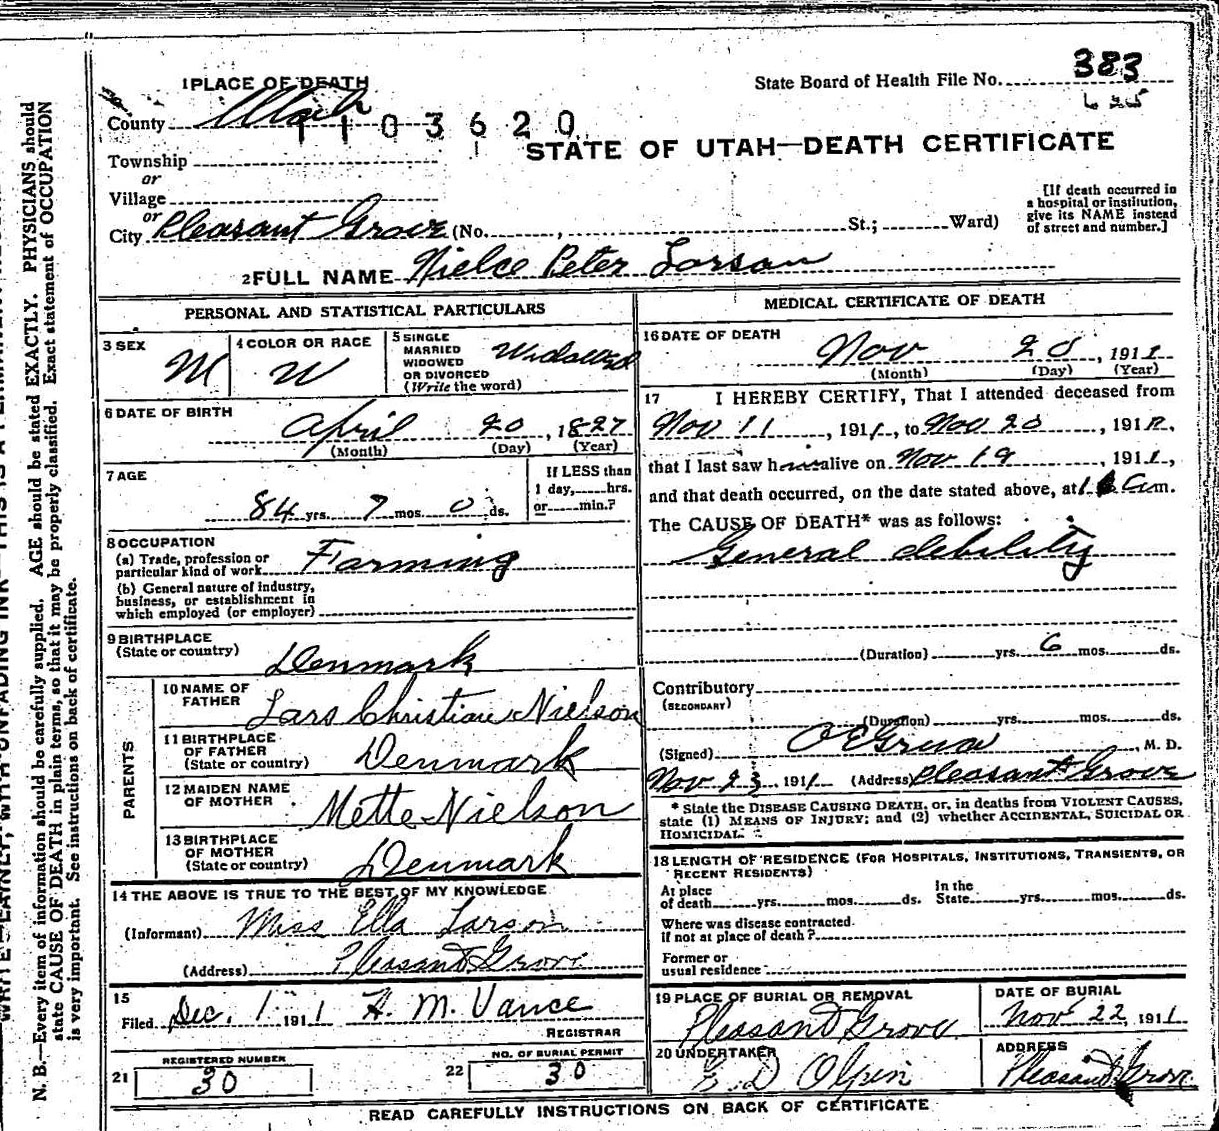 1 PLACE OF DEATH
State Board of Health File No. 383
County Utah
1103620
625
STATE OF UTAH—DEATH CERTIFICATE
Township
or
Village
or
City Pleasant Grove (No. , St.; Ward)
[If death occurred in
a hospital or institution,
give its NAME instead
of street and number.]
2 FULL NAME Nielce Peter Larson
PERSONAL AND STATISTICAL PARTICULARS
3 SEX M
4 COLOR OR RACE W
5 SINGLE
MARRIED
WIDOWED
OR DIVORCED
(Write the word)
Widowed
6 DATE OF BIRTH
April 20, 1827
(Month) (Day) (Year)
7 AGE
84 yrs. 7 mos. 0 ds.
If LESS than
1 day, hrs.
or min.?
8 OCCUPATION
(a) Trade, profession or
particular kind of work Farming
(b) General nature of industry,
business, or establishment in
which employed (or employer)
9 BIRTHPLACE
(State or country) Denmark
PARENTS
10 NAME OF
FATHER
Lars Christian Nielson
11 BIRTHPLACE
OF FATHER
(State or country) Denmark
12 MAIDEN NAME
OF MOTHER
Mette Nielson
13 BIRTHPLACE
OF MOTHER
(State or country) Denmark
14 THE ABOVE IS TRUE TO THE BEST OF MY KNOWLEDGE
(Informant) Miss Ella Larson
(Address) Pleasant Grove
15
Filed Dec. 1 1911 H. M. Vance
REGISTRAR
21 REGISTERED NUMBER
30
22 NO. OF BURIAL PERMIT
30
MEDICAL CERTIFICATE OF DEATH
16 DATE OF DEATH
Nov 20, 1911
(Month) (Day) (Year)
17 I HEREBY CERTIFY, That I attended deceased from
Nov 11, 1911, to Nov 20, 191
that I last saw him alive on Nov 19, 1911,
and that death occurred, on the date stated above, at 1 a m.
The CAUSE OF DEATH* was as follows:
General debility
(Duration) yrs. 6 mos. ds.
Contributory
(SECONDARY)
(Duration) yrs. mos. ds.
(Signed) , M. D.
Nov 23 1911 (Address) Pleasant Grove
* State the DISEASE CAUSING DEATH, or, in deaths from VIOLENT CAUSES,
state (1) MEANS OF INJURY; and (2) whether ACCIDENTAL, SUICIDAL OR
HOMICIDAL.
18 LENGTH OF RESIDENCE (FOR HOSPITALS, INSTITUTIONS, TRANSIENTS, OR
RECENT RESIDENTS)
At place
of death yrs. mos. ds.
In the
State yrs. mos. ds.
Where was disease contracted.
if not at place of death?
Former or
usual residence
19 PLACE OF BURIAL OR REMOVAL
Pleasant Grove
DATE OF BURIAL
Nov 22, 1911
20 UNDERTAKER
E. D Olpin
ADDRESS
Pleasant Grove
READ CAREFULLY INSTRUCTIONS ON BACK OF CERTIFICATE
N. B.—Every item of information should be carefully supplied. AGE should be stated EXACTLY. PHYSICIANS should
state CAUSE OF DEATH in plain terms, so that it may be properly classified. Exact statement of OCCUPATION
is very important. See instructions on back of certificate.